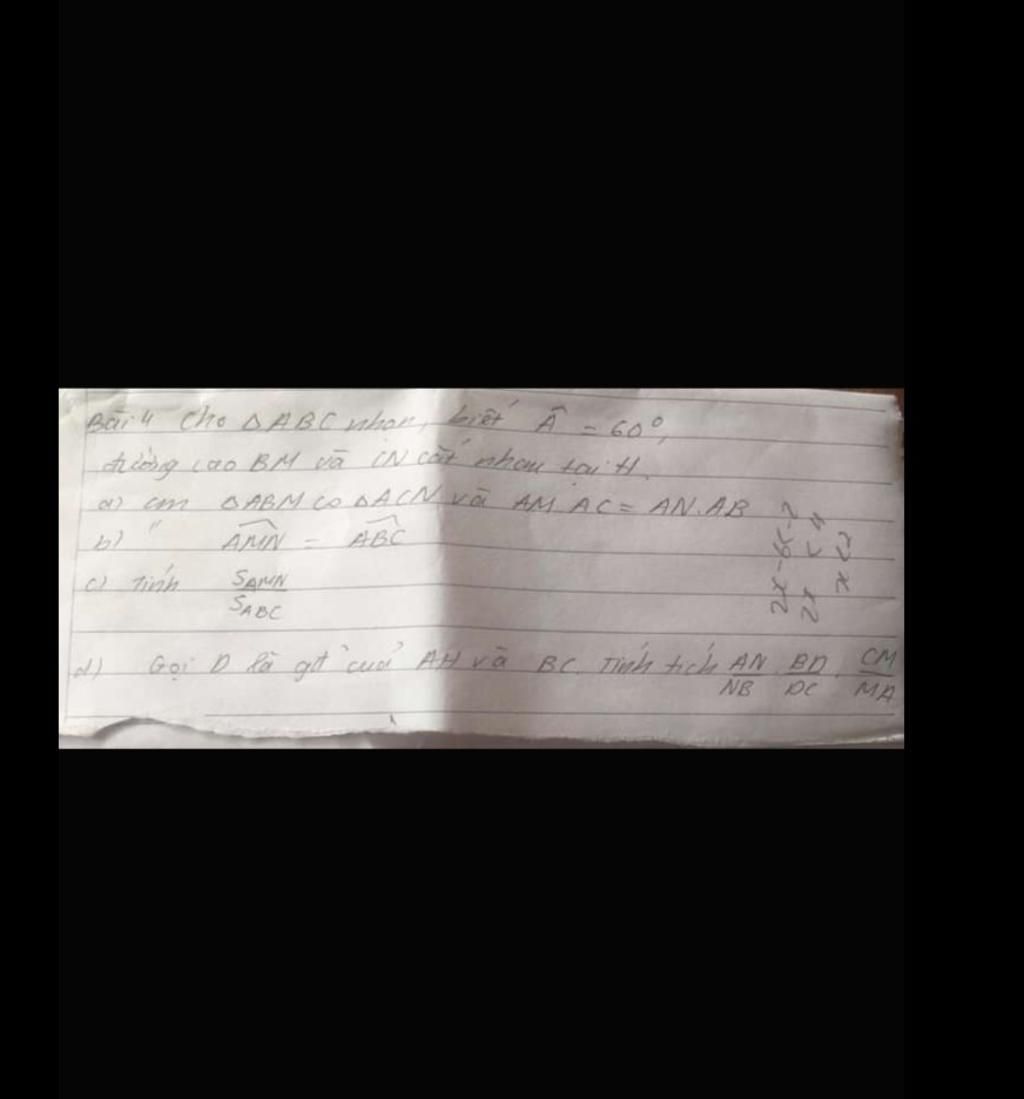 Bài 4 Cho ΔABC nhọn, biết Â = 60°,
đường cao BM và CN cắt nhau tại H.
a) cm ΔABM ∽ ΔACN và AM. AC = AN.AB
b) " \widehat{AMN} = \widehat{ABC}
c) Tính \frac{S_{AMN}}{S_{ABC}}
d) Gọi D là gđ của AH và BC. Tính tích \frac{AN}{NB} . \frac{BD}{DC} . \frac{CM}{MA}
2x < 4
x < 2